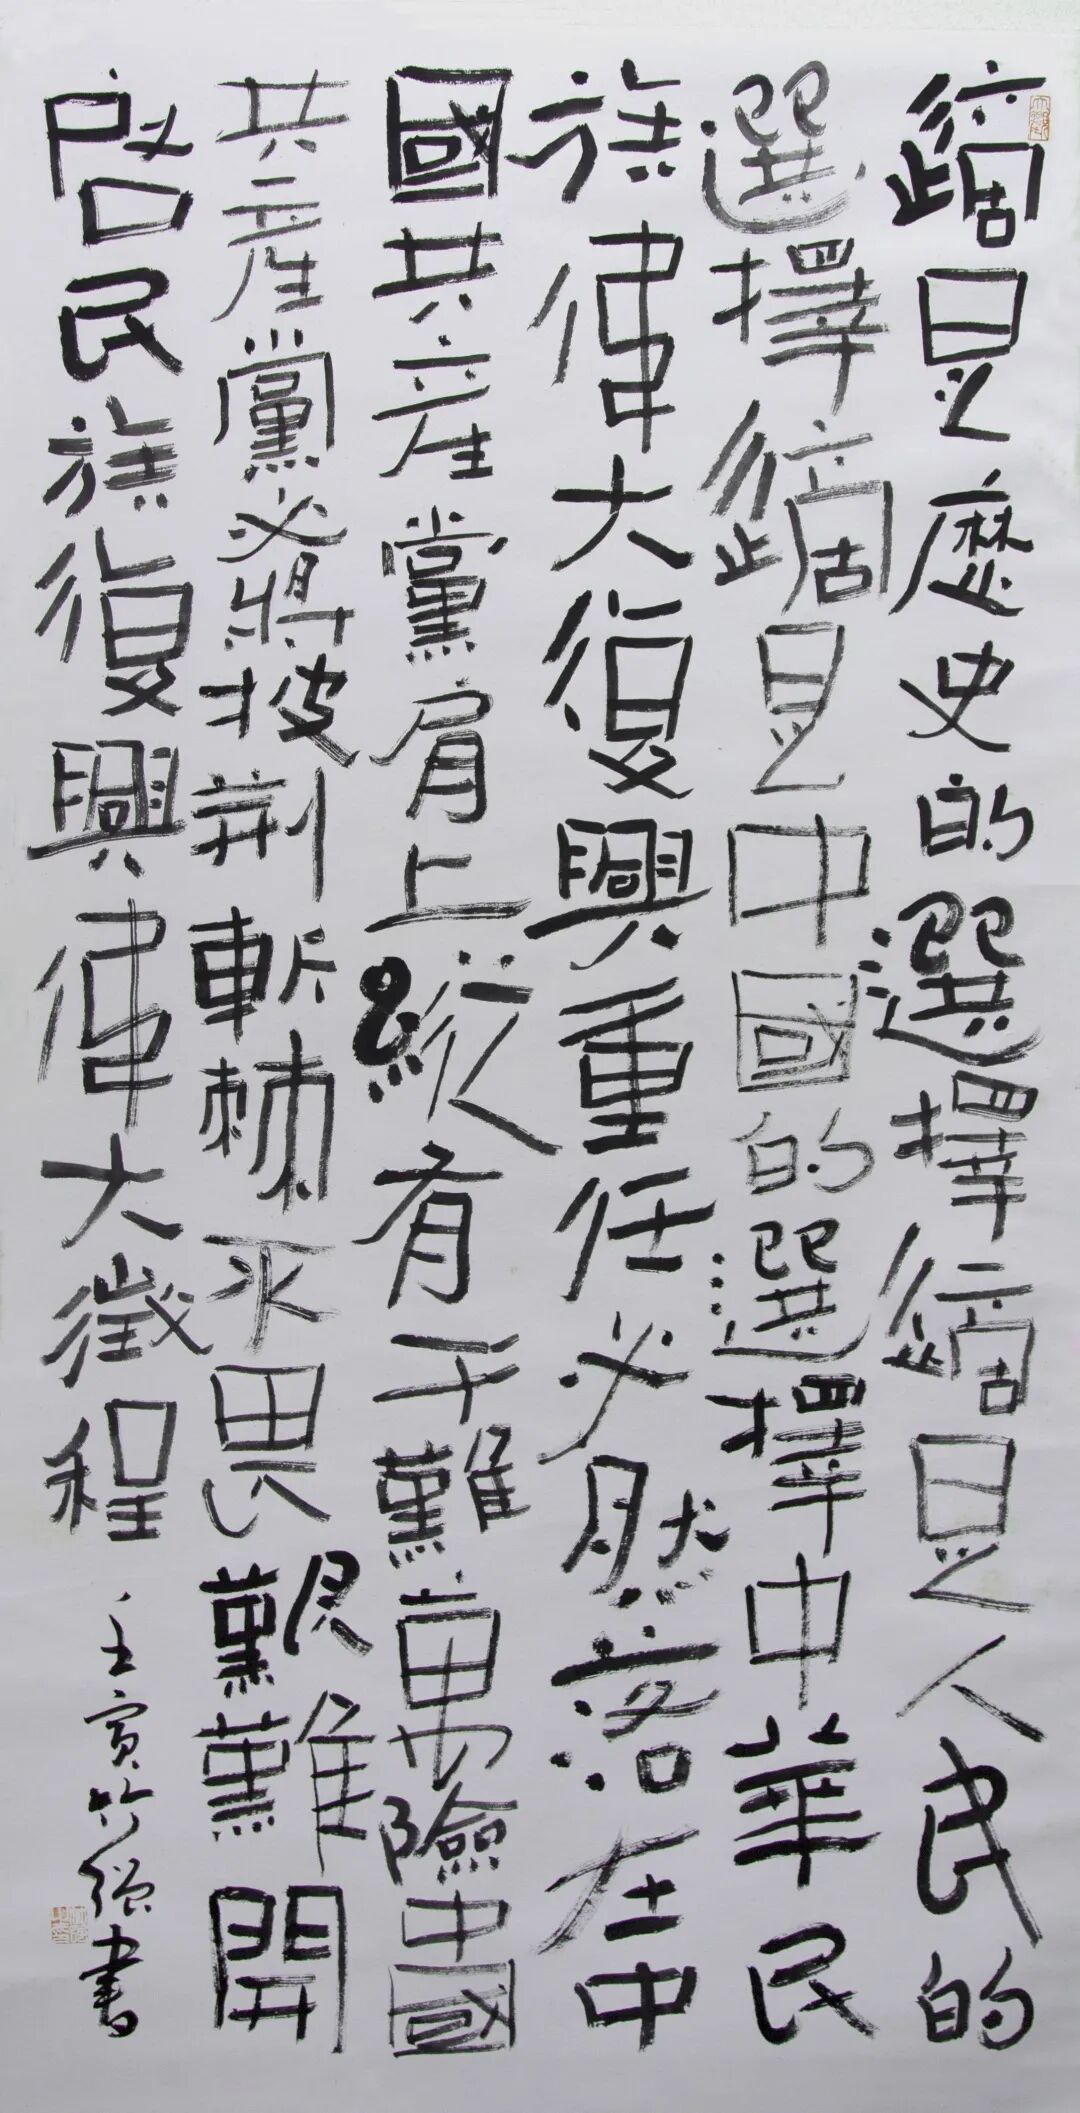 適是歷史的選擇適是人民的
選擇適是中國的選擇中華民
族偉大復興重任必然落在中
國共產黨肩上縱有千難萬險中國
共產黨必將披荊斬棘不畏艱難開
啓民族復興偉大徵程
壬寅竹強書